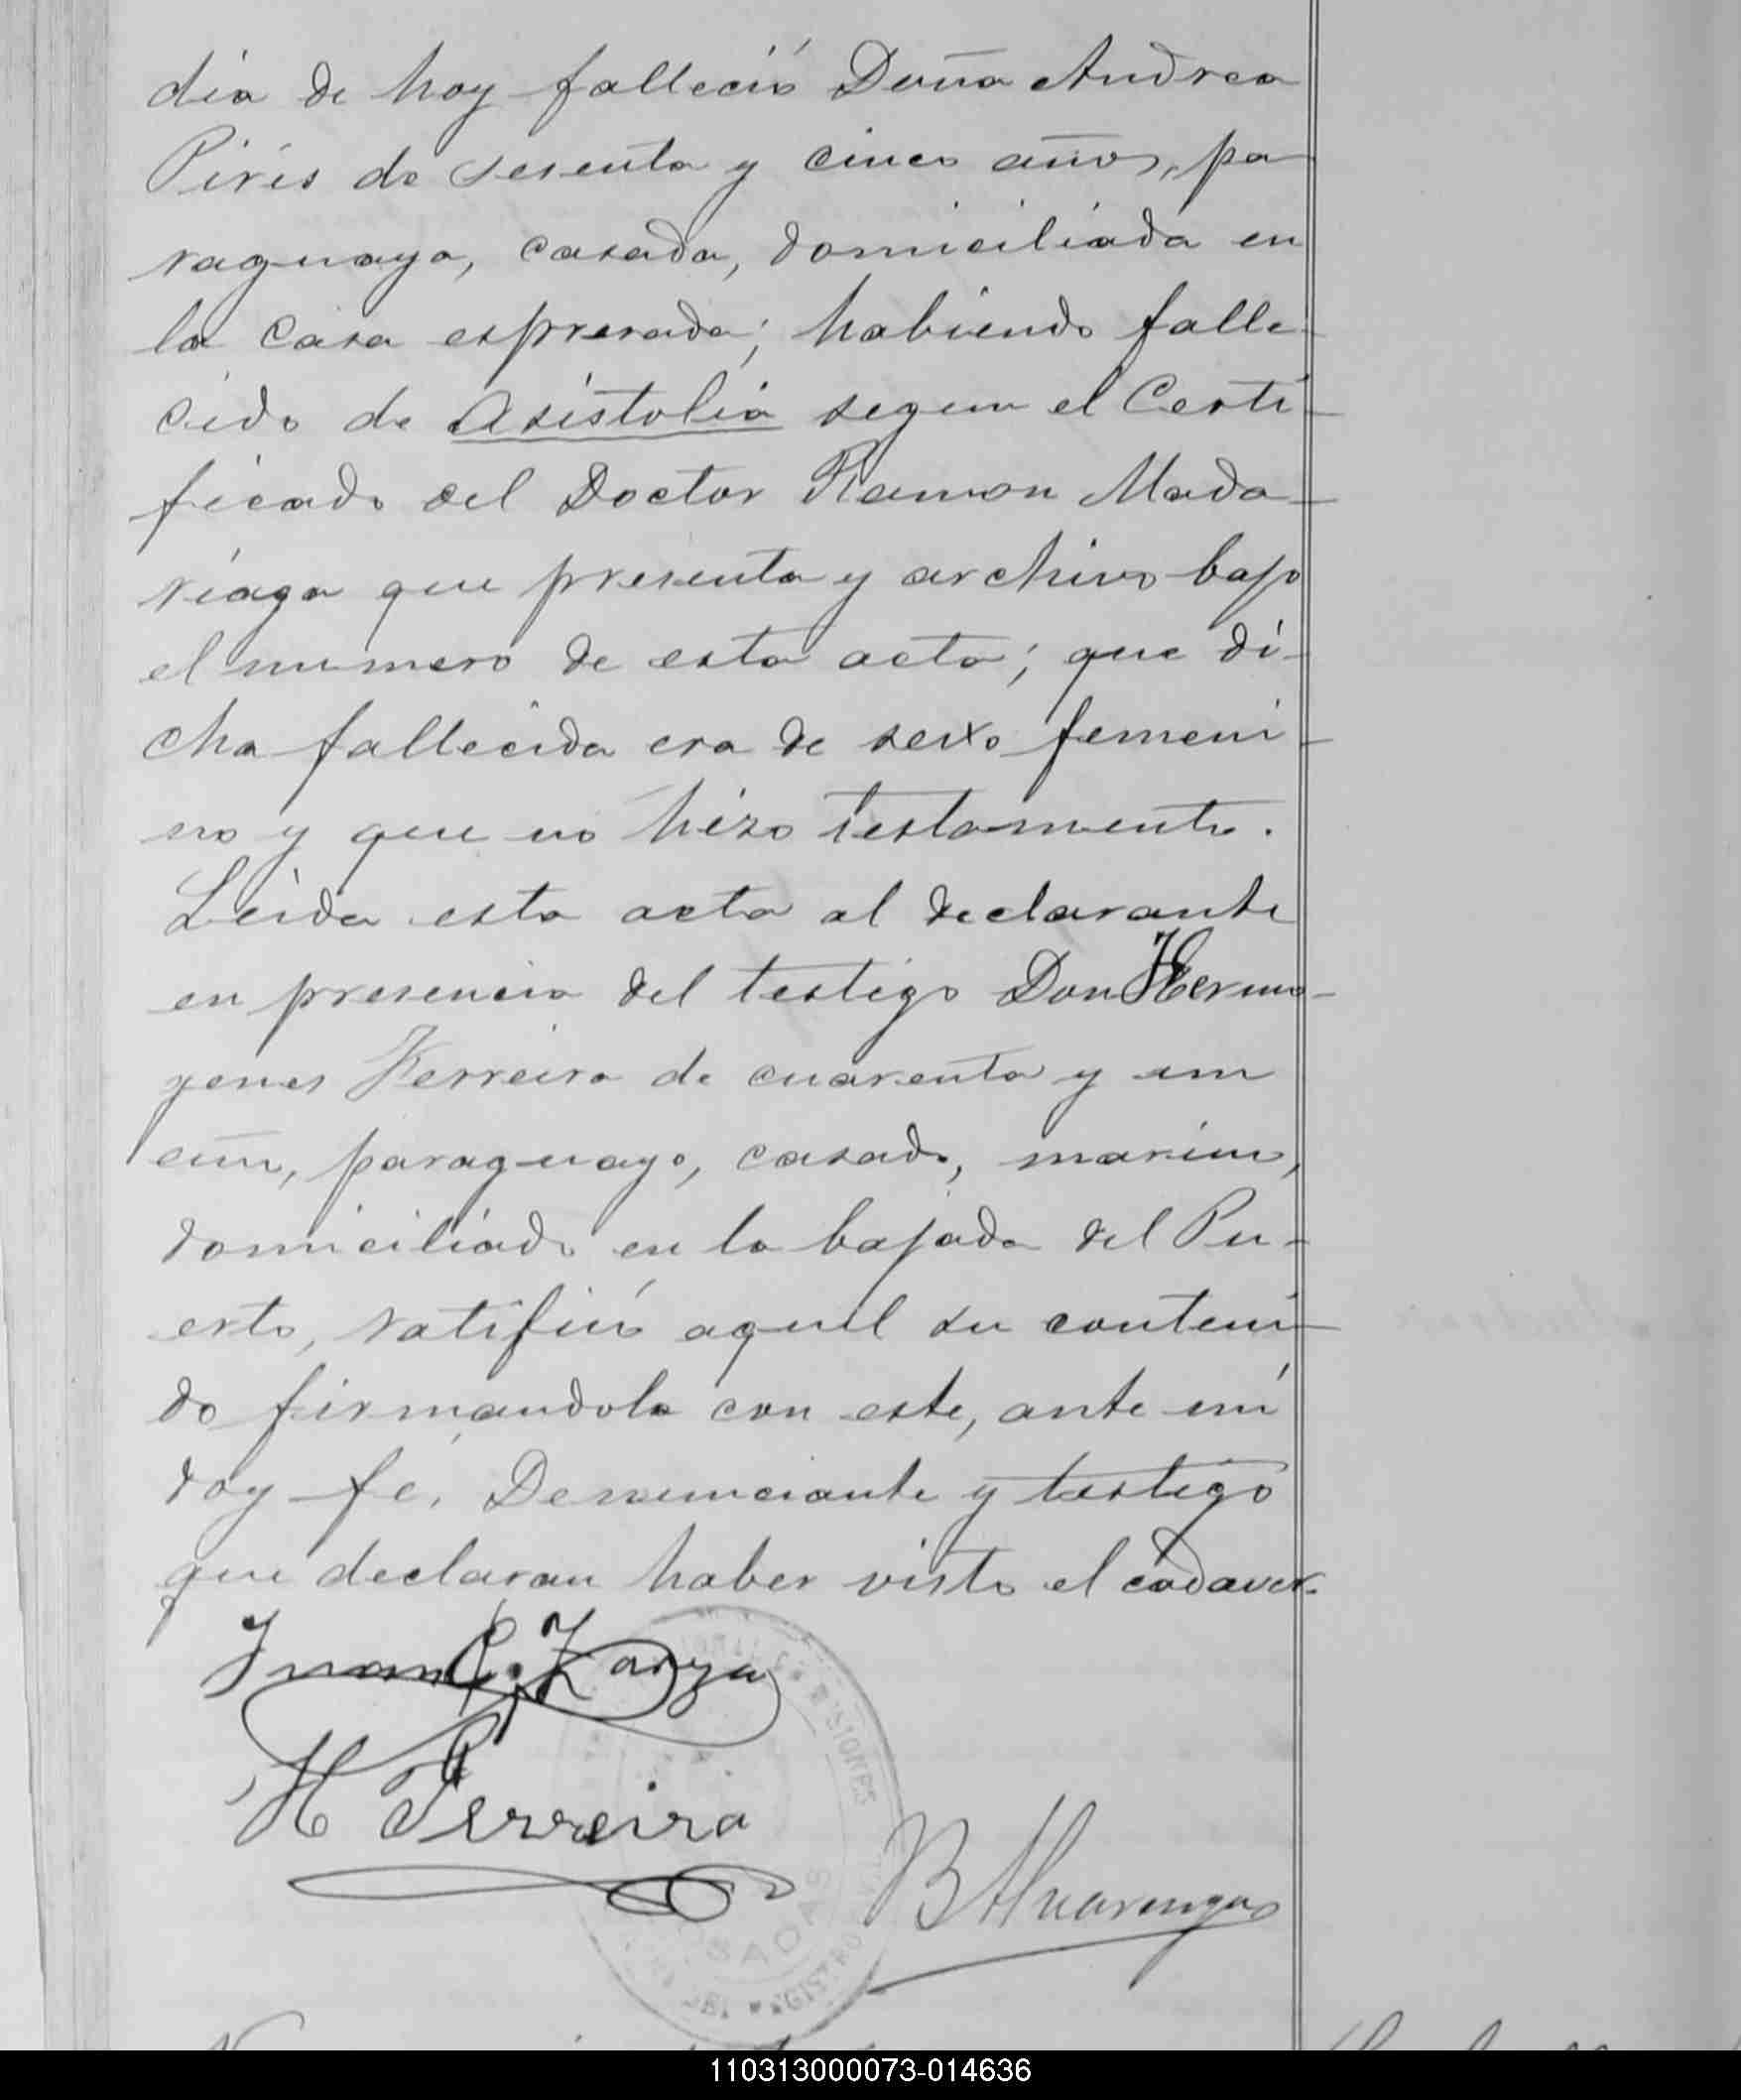 dia de hoy falleció Doña Andrea
Pirís de sesenta y cinco años, pa
raguaya, casada, domiciliada en
la casa espresada; habiendo falle-
cido de Asistolia segun el Certi-
ficado del Doctor Ramon Mada-
riaga que presenta y archivo bajo
el numero de esta acta; que di-
cha fallecida era de sexo femeni-
no y que no hizo testamento.
Leida esta acta al declarante
en presencia del testigo Don Hermo-
genes Ferreira de cuarenta y un
año, paraguayo, casado, marino,
domiciliado en la bajada del Pu-
erto, ratificó aquel su conteni-
do firmandola con este, ante mí
doy fé. Denunciante y testigo
que declaran haber visto el cadaver.
Juan C. Zarza
H Ferreira
B Alvarenga
MISIONES
POSADAS
REGISTRO
110313000073-014636